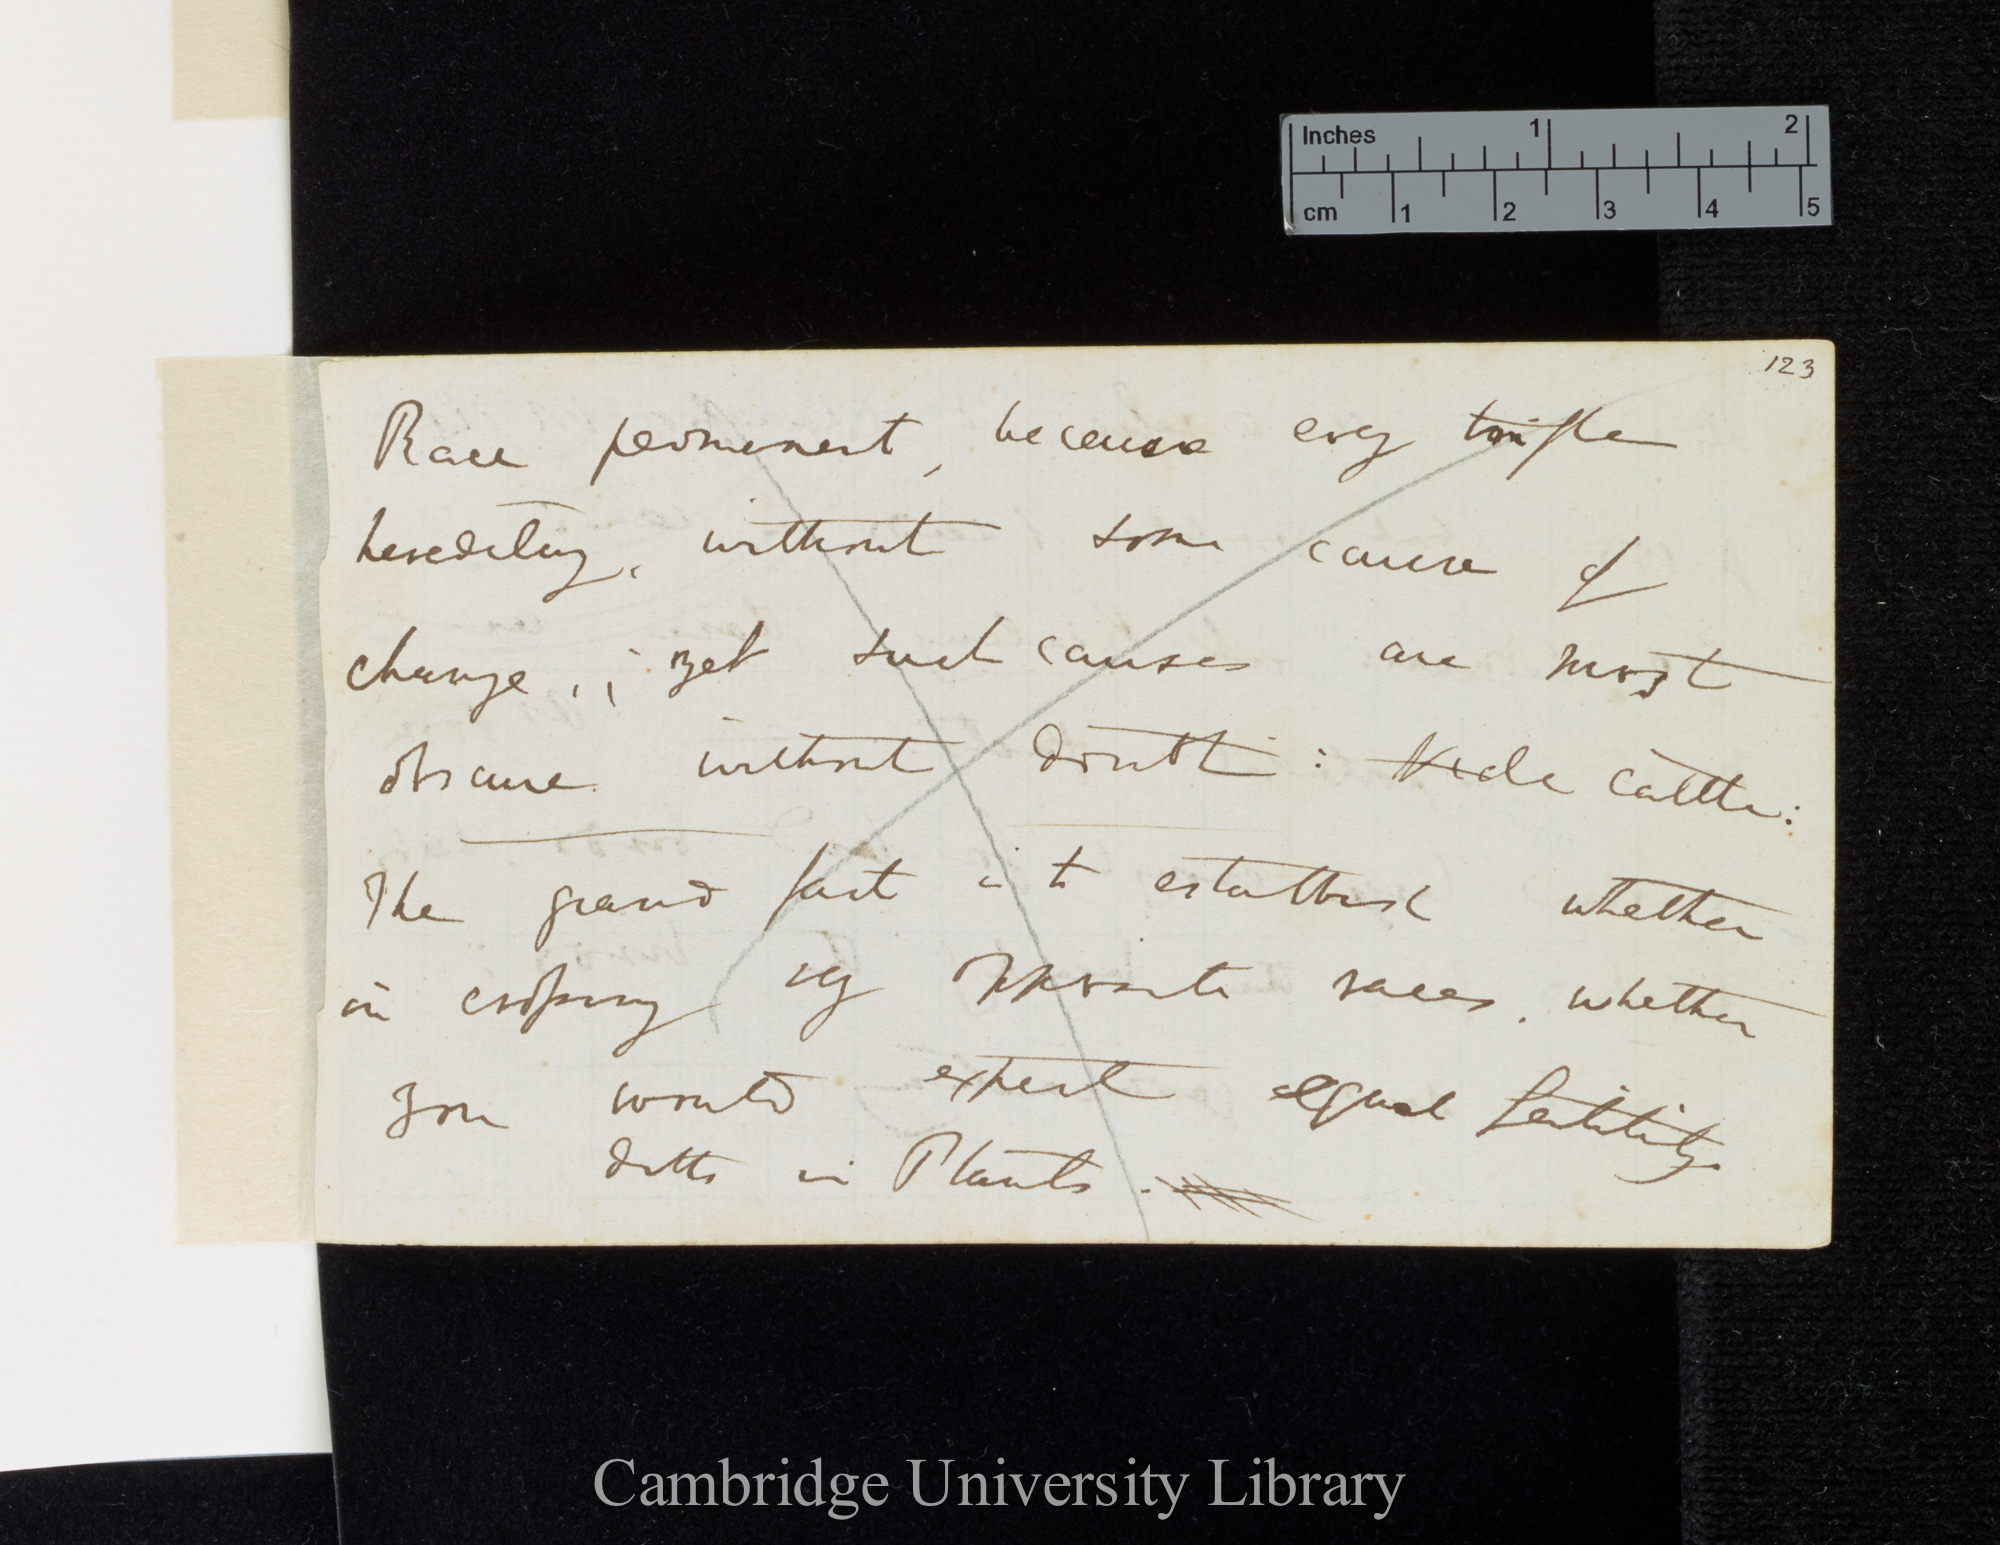 Inches 1 2
cm 1 2 3 4 5
123
Race permanent, because every trifle
hereditary, without some cause of
change,; yet such causes are most
obscure without doubt: Vide cattle:
The grand fact is to establish whether
in crossing very opposite races, whether
you would expect equal fertility
ditto in Plants.
Cambridge University Library